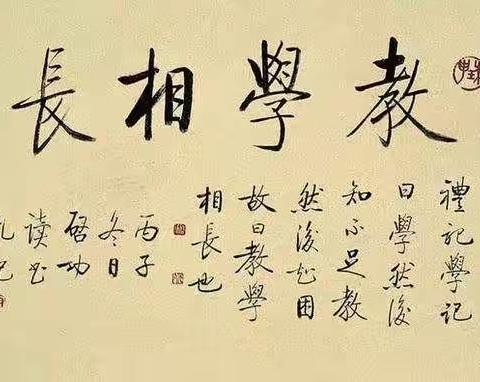 教學相長
禮記學記
曰學然後
知不足教
然後知困
故曰教學
相長也
丙子
冬日
啓功
读书